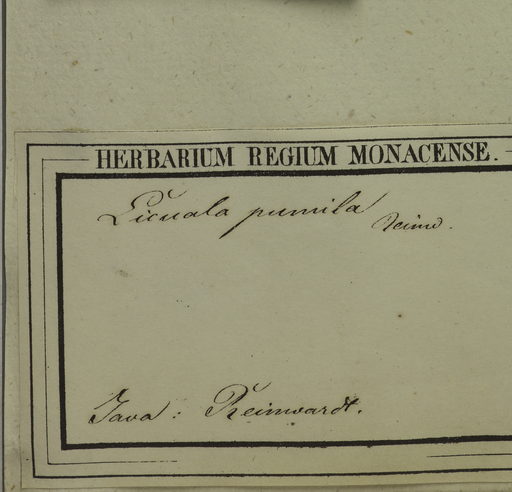 HERBARIUM REGIUM MONACENSE.
Licuala pumila Reinw.
Java: Reinwardt.